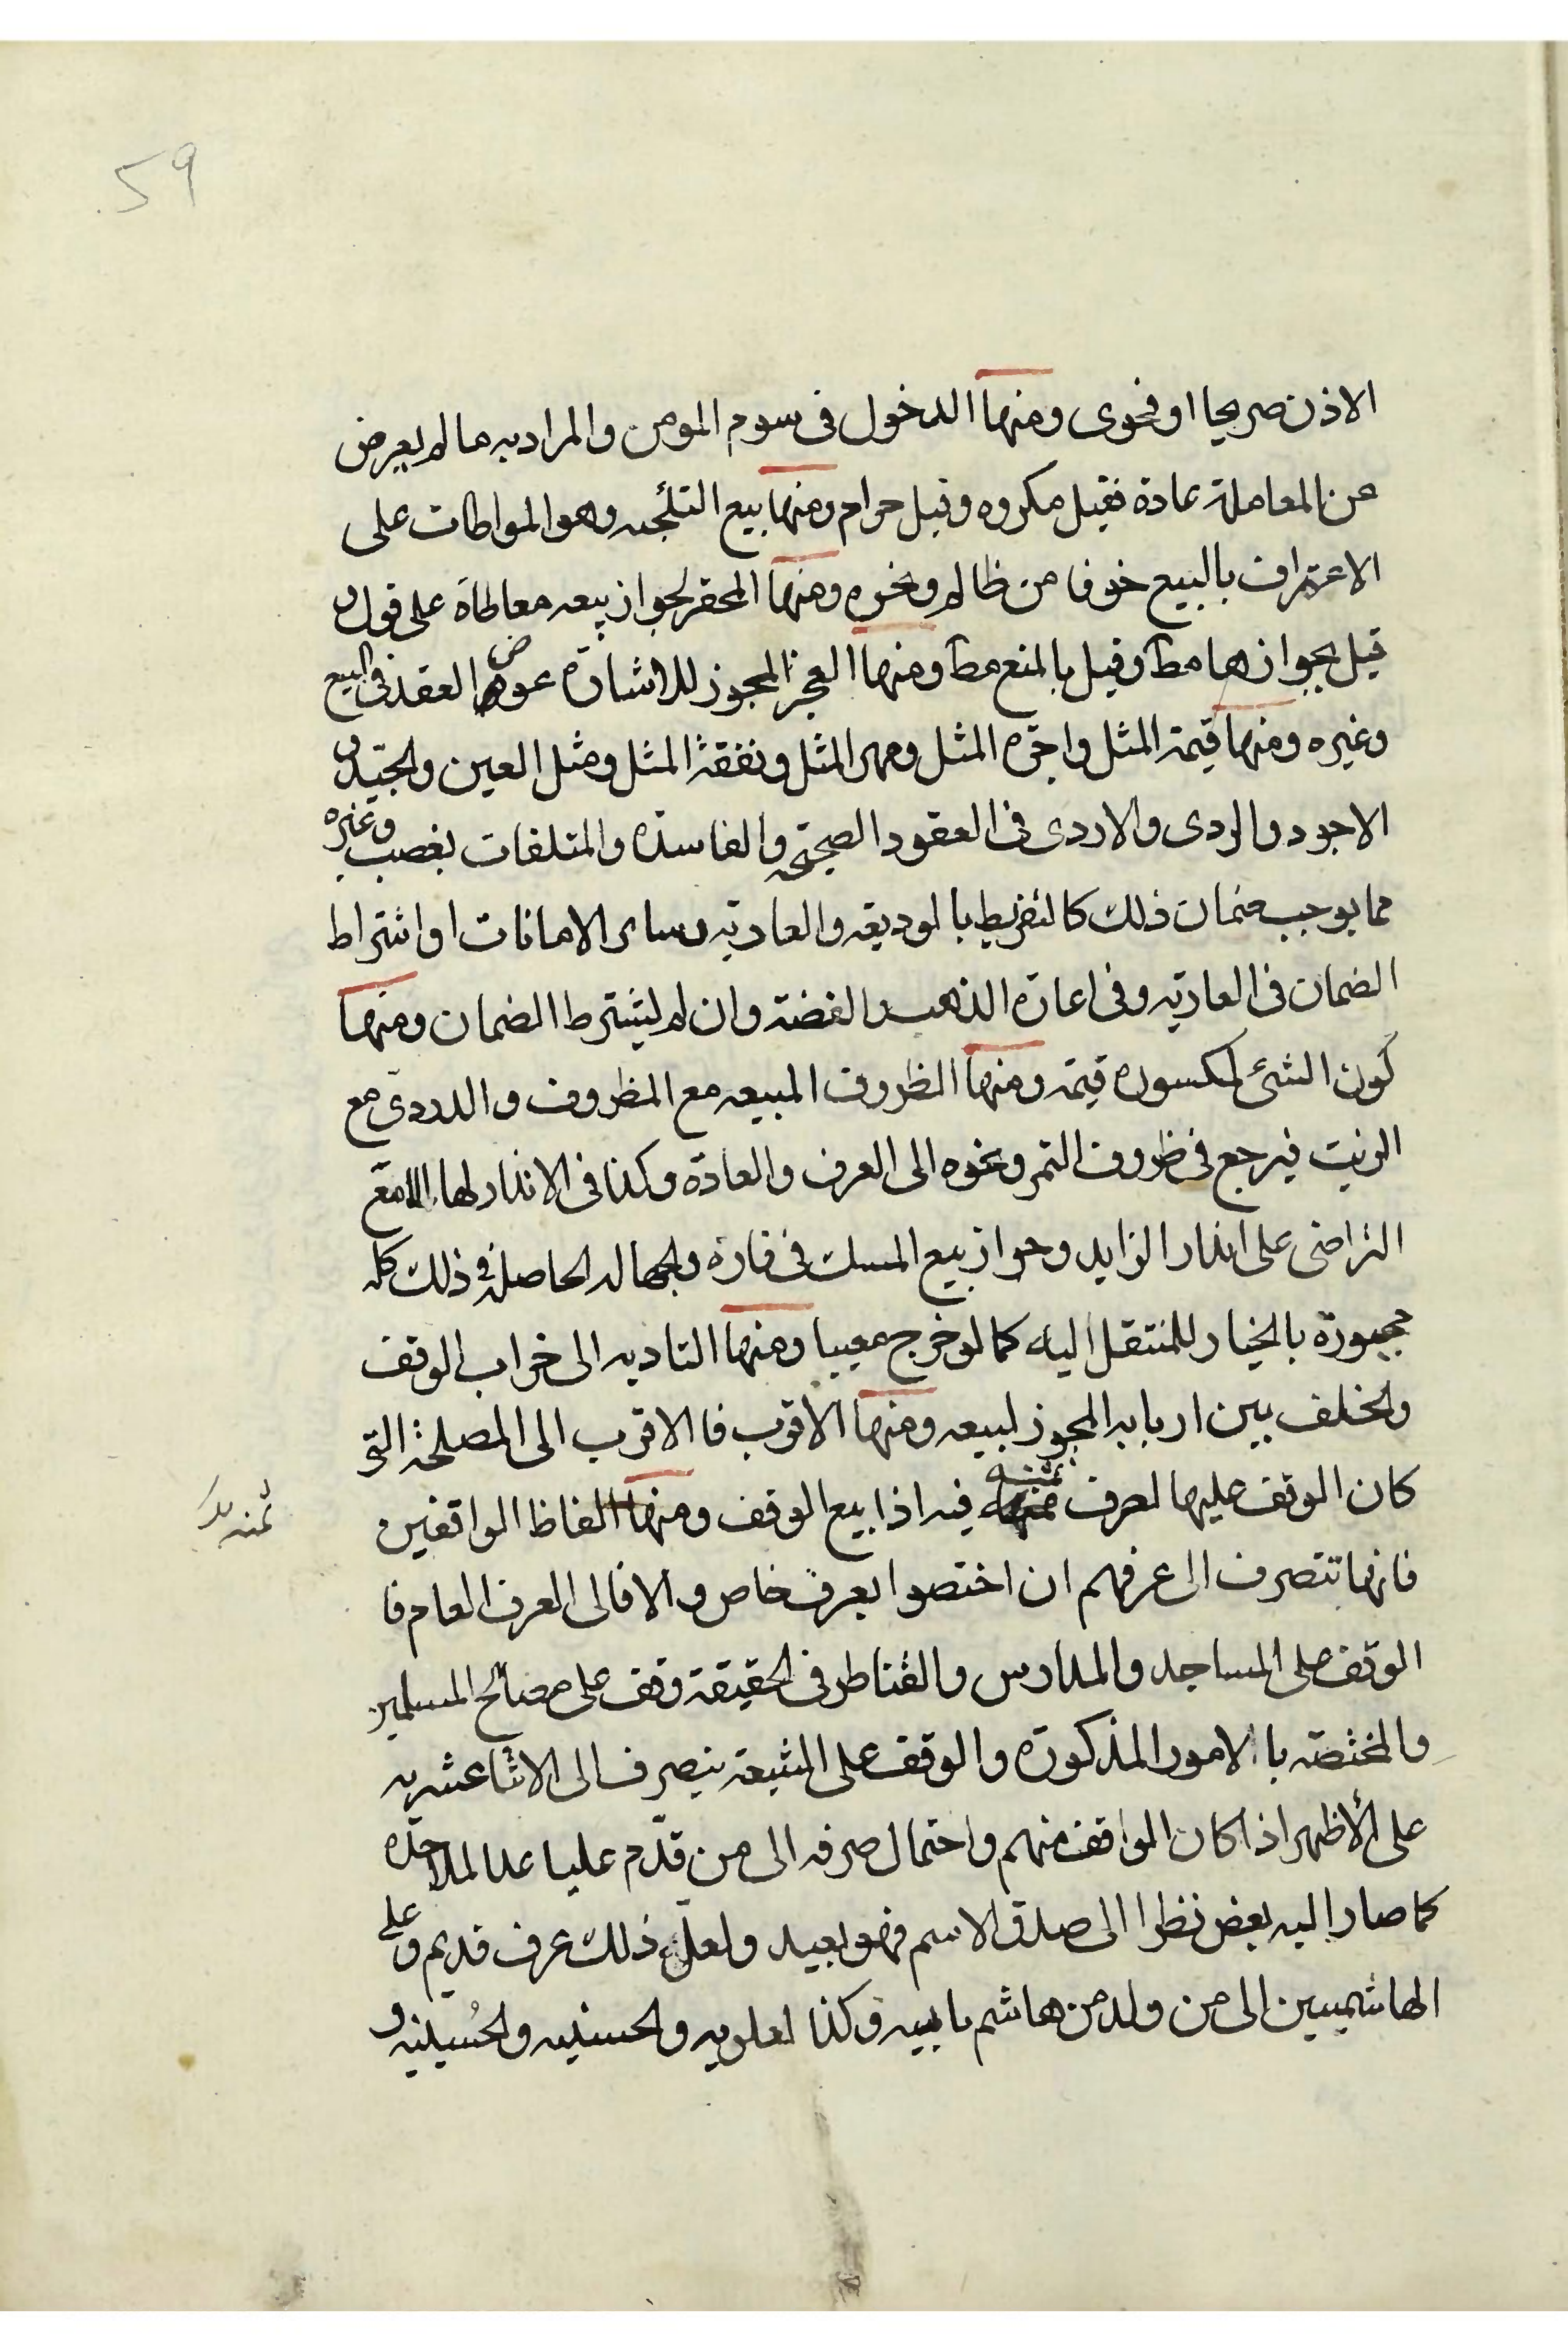 59
الاذن صريحا او فحوى ومنها الدخول فى سوم المومن والمراد به ما لم يعرض
عن المعاملة عادة فقيل مكروه وقيل حرام ومنها بيع التلجئه وهو المواطات على
الاعتراف بالبيع خوفا من ظالم ونحوه ومنها المحقر لجواز بيعه معاطاة على قول و
قيل بجوازها مط وقيل بالمنع مط ومنها العجز المجوز للاشارة عوض العقد فى البيع
وغيره ومنها قيمة المثل واجرة المثل ومهر المثل ونفقة المثل ومثل العين والجيّد و
الاجود والردى والاردى فى العقود الصحيحه والفاسدة والمتلفات بغصب وغيره
مما يوجب ضمان ذلك كالتفريط بالوديعه والعاريه وساير الامانات او اشتراط
الضمان فى العاريه وفى اعارة الذهب والفضة وان لم يشترط الضمان ومنها
كون الشئ لمكسوره قيمة ومنها الظروف المبيعه مع المظروف والدردى مع
الزيت فيرجع فى ظروف التمر ونحوه الى العرف والعادة وكذا فى الانذار لها الا مع
التراضى على انذار الزايد وجواز بيع المسك فى فاره والجهاله الحاصلة فى ذلك كله
مجبورة بالخيار للمنتقل اليه كما لو خرج معيبا ومنها التاديه الى خراب الوقف
والخلف بين اربابه المجوز لبيعه ومنها الاقرب فالاقرب الى المصلحة التى
كان الوقف عليها لصرف ثمنه فيه اذا بيع الوقف ومنها الفاظ الواقفين
ثمنه
فانها تتصرف الى عرفهم ان اختصوا بعرف خاص والا فالى العرف العام فا
الوقف على المساجد والمدارس والقناطر فى الحقيقة وقف على مصالح المسلمين
والمختصة باالامور المذكورة والوقف على الشيعة ينصرف الى الاثنا عشريه
على الأظهر اذا كان الواقف منهم واحتمال صرفه الى من قدّم عليا عدا الملاحدة
كما صار اليه بعض نظرا الى صدق الاسم فهو بعيد ولعل ذلك عرف قديم وعلى
الهاشميين الى من ولد من هاشم بابيه وكذا العلويه والحسنيه والحُسينيه و